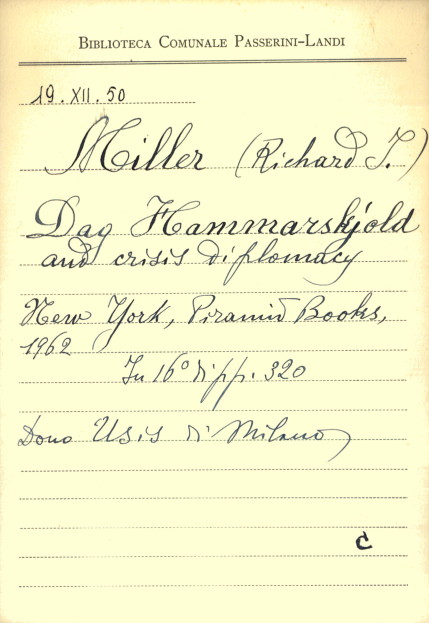 BIBLIOTECA COMUNALE PASSERINI-LANDI
19.XII.50
Miller (Richard I.)
Dag Hammarskjold
and crisis diplomacy
New York, Piramid Books,
1962
In 16° di pp. 320
Dono Usis di Milano
C